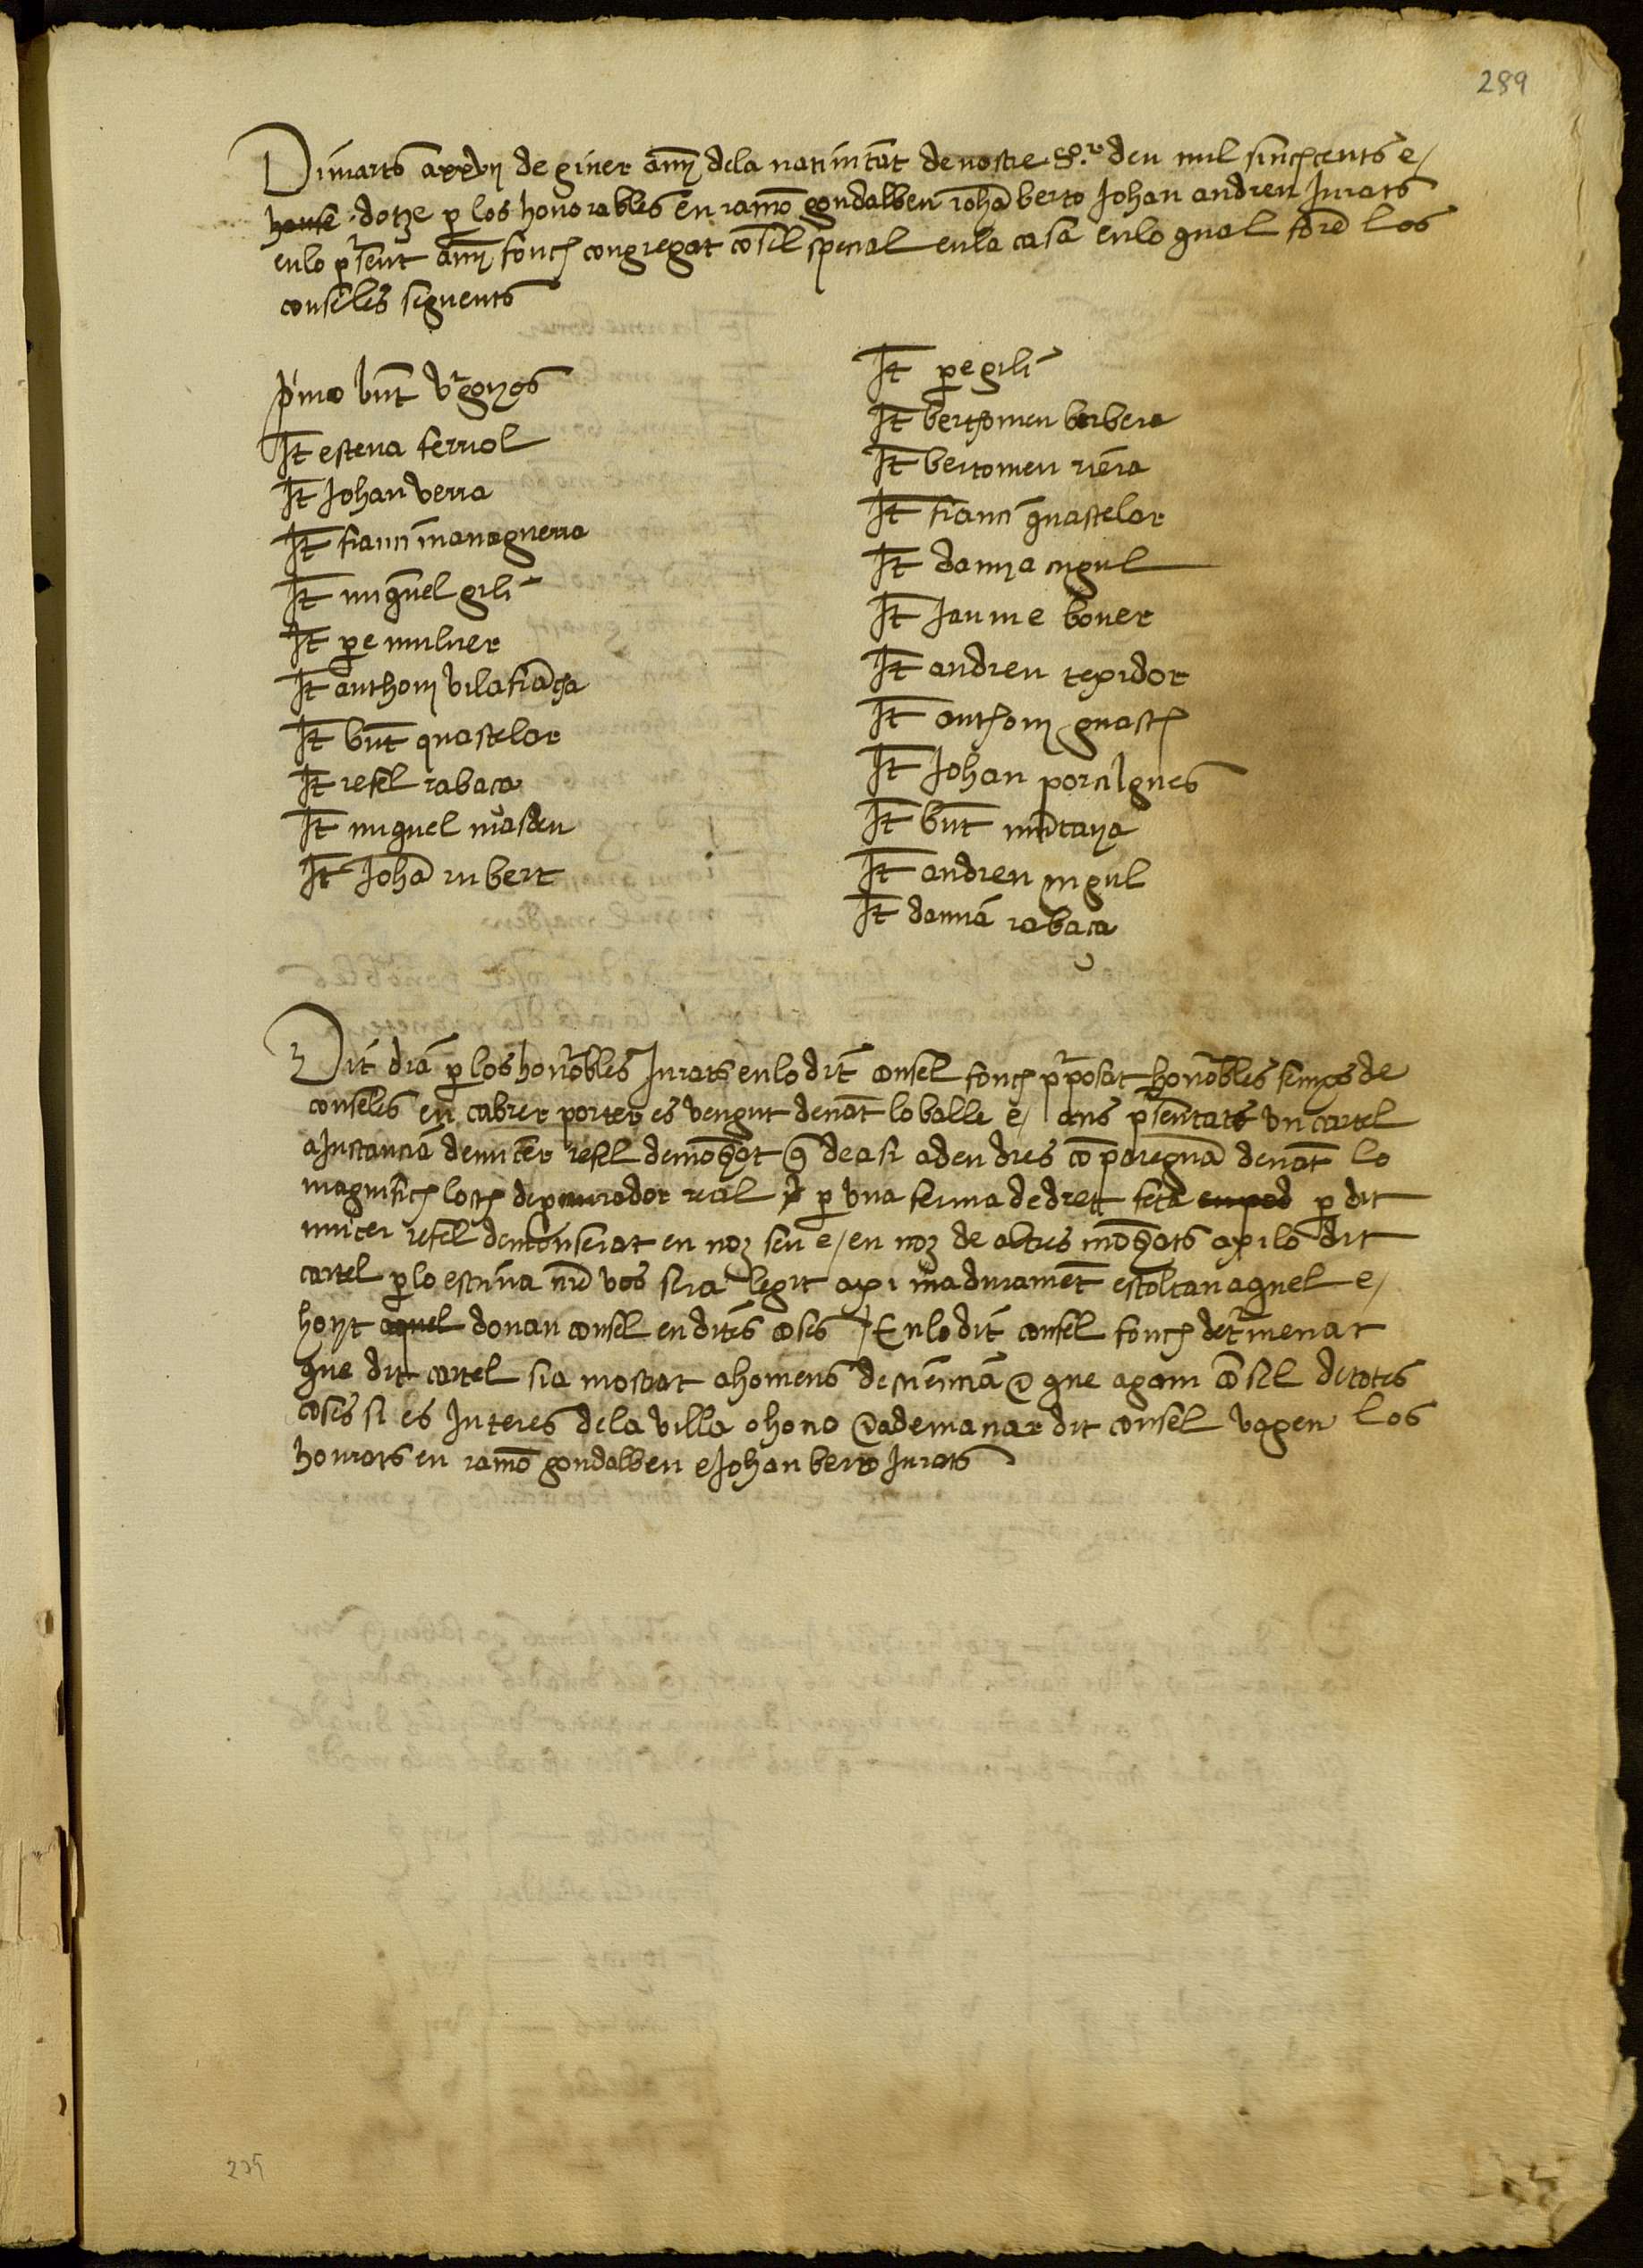 289
Dimarts a xxvij de giner añy dela nativitat de nostre Sor deu mil sinchcents e/
honse dotze p los honorables en ramō gondalbeu iohā berto Johan andreu Jurats
enlo pñsent añy fonch congregat cōsell special en la casa enlo qual forē los
consellés seguents
pimo bñt
It esteva ferriol
It Johan verra
It franci managuerra
It miquel gili
It pe muluer
It anthonj vilafrācha
It bñt quastelar
It refel rabaça
It miquel masdeu
It Johā rubert
It pe gili
It berthomeu barbera
It bertomeu riera
It franci quastelar
It damia cugul
It Jaume bover
It andreu texidor
It anthonj guasch
It Johan porcilgues
It bñt mūtaya
It andreu cugul
It damiā rabaça
Dit diā p los honorables Jurats enlo dit consel fonch pposat honorables sençs de
conselés en cabrer porter es vengut denāt lo balle e/ ans psentats un cartel
a Instancia de micer refel demōcat q̄ de asi a den dies cōparegua denāt lo
magnifich loch de pcurador real p p una ferma de dret feta p dit
micer refel demonserat en noz seu e/ en noz de altres axi lo dit
cartel p lo escriva vos sera legit axi maduramēt escoltan aquel e/
hoyt aquel donau consel en dites coses / Enlo dit consel fonch detmenat
que dit cartel sia mostrat a homens de sciencia e que agam cōsell de totes
coses si es Interes dela villa o hono e a demanar dit consel vagen los
honrats en ramō gondalbeu e Johan berto Jurats